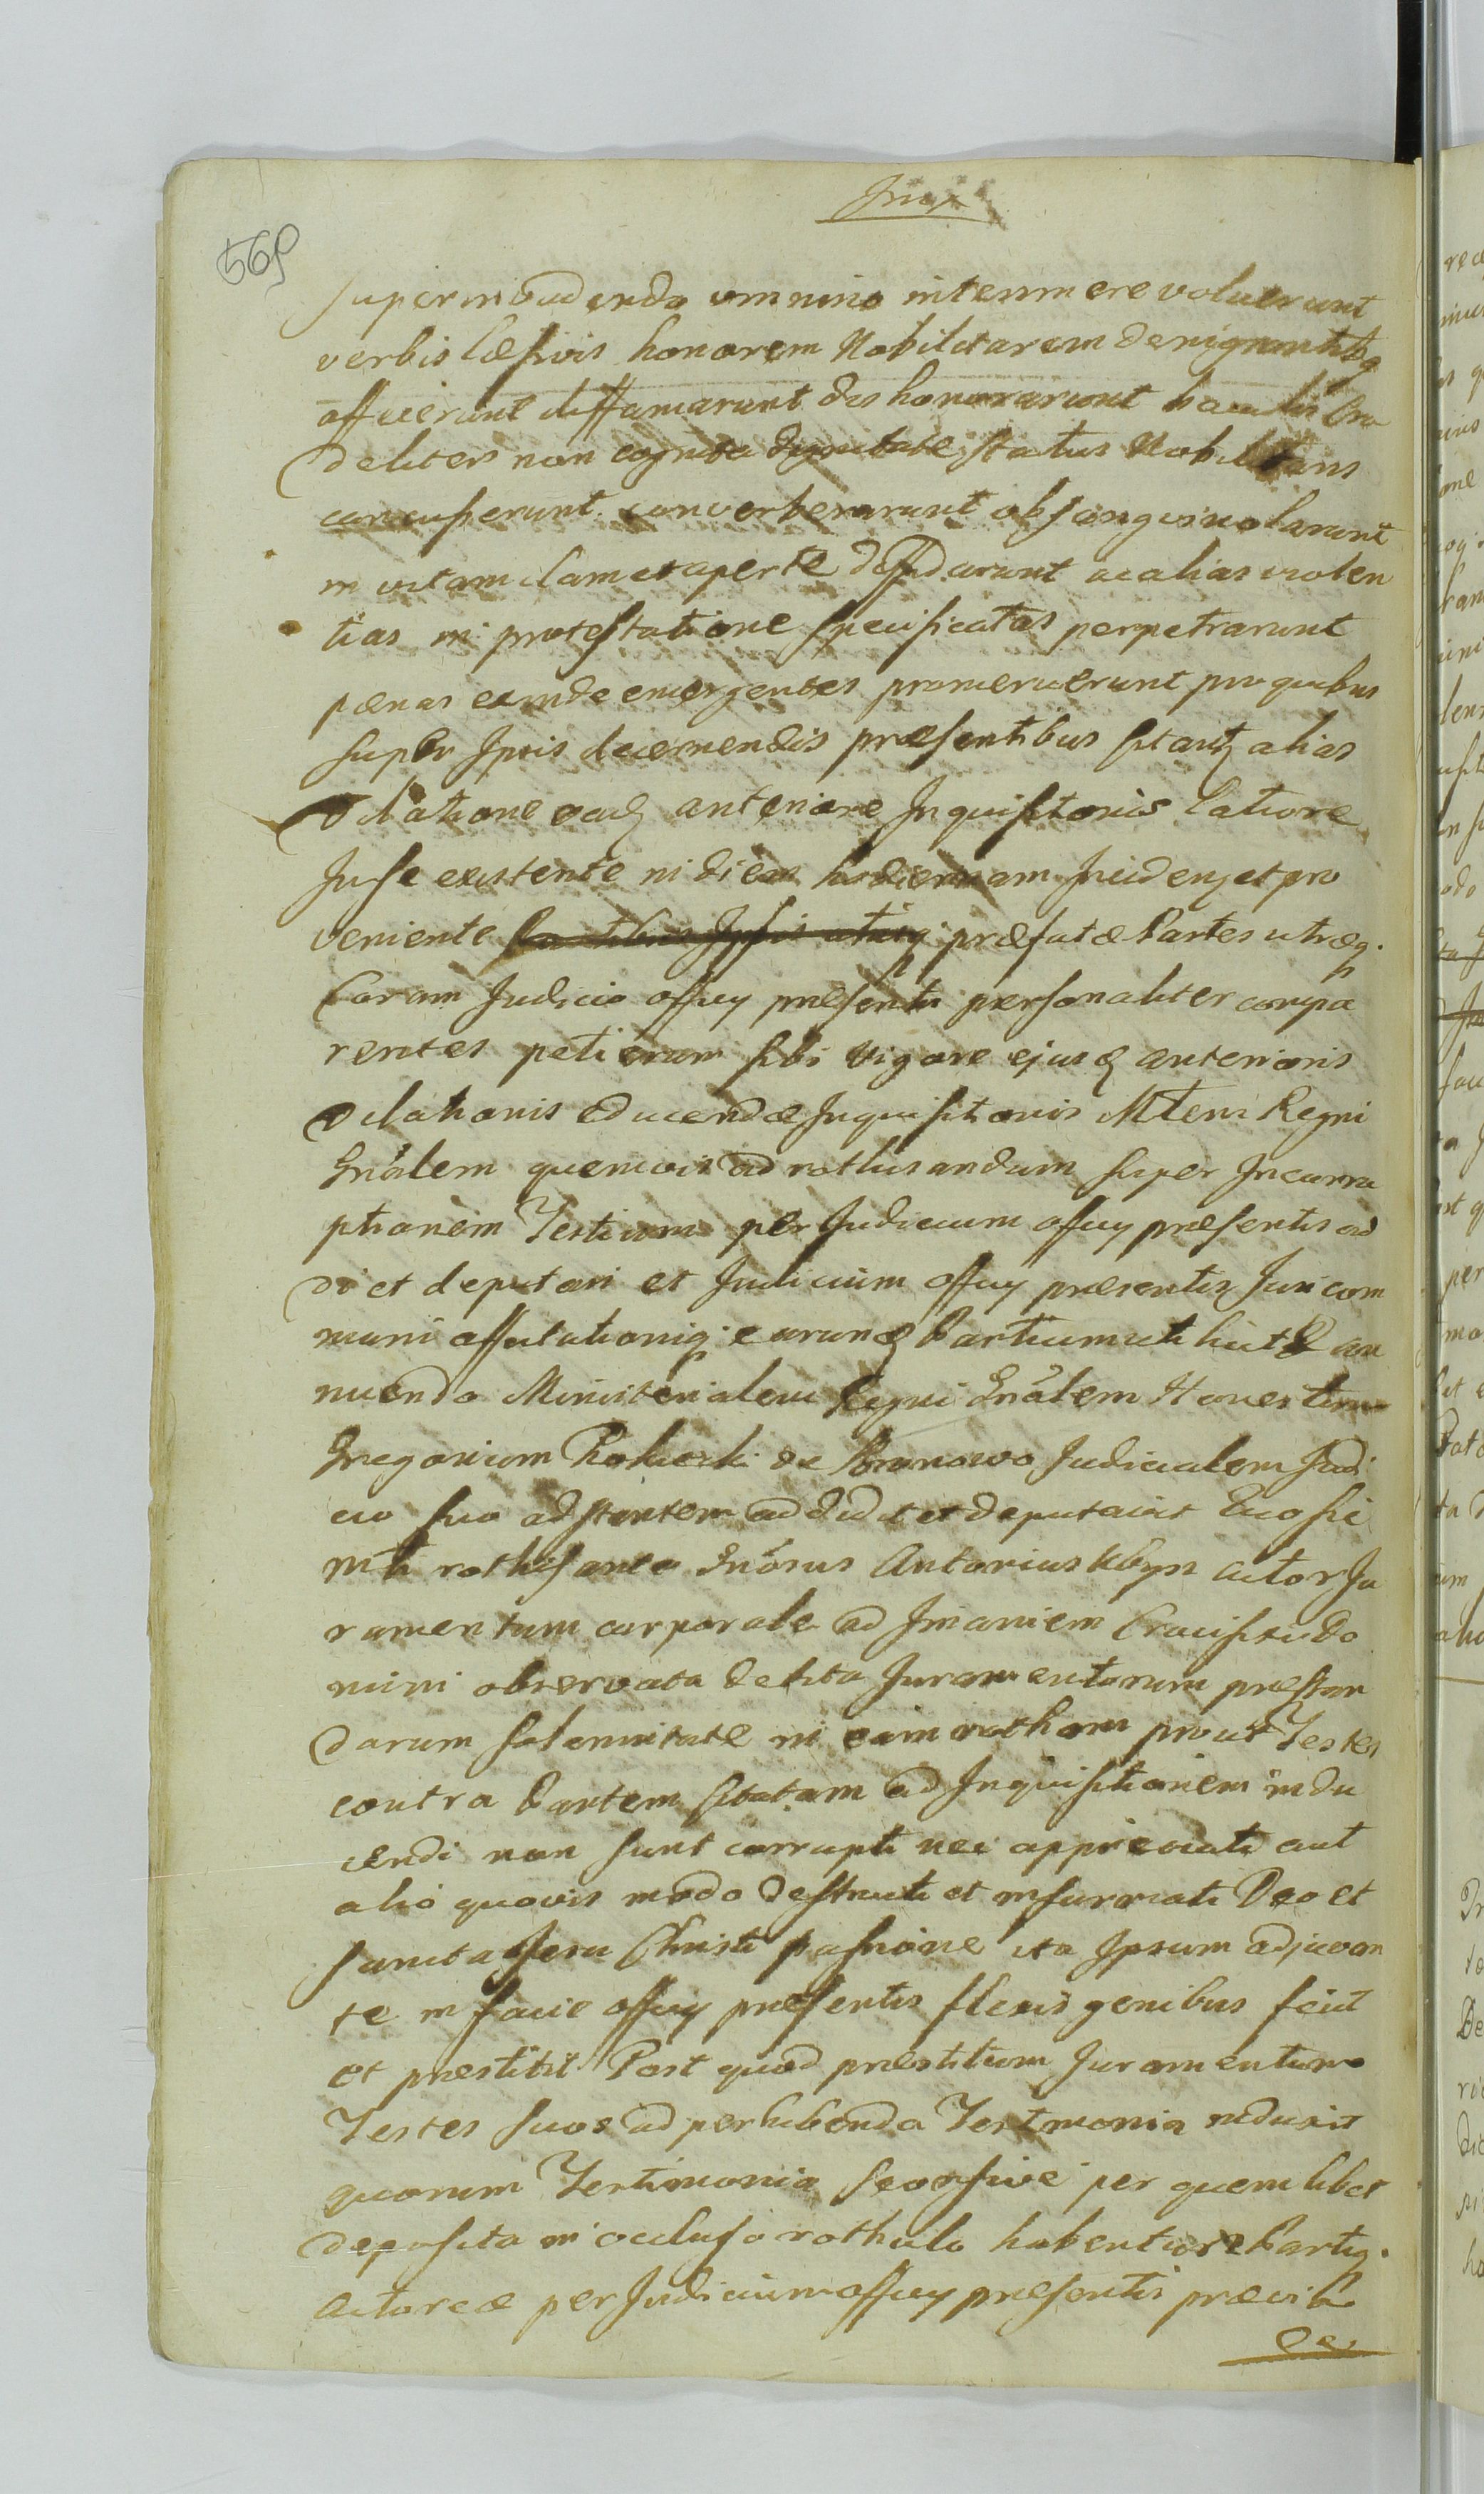 569
superinvadendo omnino interimere voluerunt
verbis læsivis honorem Nobilitarem denigrantibq
affecerunt diffamarunt dishonorarunt baculis Cru
deliter non cognita dignitate status Nobilitaris
concusserunt converberarunt obsanguinolarunt
in vitam clam et aperte diffidarunt ac alias violen
tias in protestatione specificatas perpetrarunt
pænas exinde emergentes promeruerunt pro quibus
super Ipsis decernendis præsentibus alias
dilatione anteriore Inquisitionis latiore
In se existente in diem hodiernam et pro
veniente præfatæ Partes utræq.
Coram Judicio officy præsentis personaliter compa
rentes petierunt sibi vigore anterioris
dilationis educendæ Inquisitionis Mtem Regni
Gnalem quemvis ad rothisandum super Incorru
ptionem Testium per Judicium officy præsentis ad
di et deputari et Judicium officy præsentis Juri com
muni affectationiq. Partium an
nuendo Ministerialem Regni Gnalem Honestum
Gregorium de Judicialem Judi
cio suo adstantem addidit et deputavit
rothisante Gnosus Antonius actor Ju
ramentum corporale ad Imaniem Crucifixi do
mini observata debita Juramentorum præstan
darum solennitate in eam rotham prout Testes
contra Partem ad Inquisitionem indu
cendi non sunt corrupti nec appreciati aut
alio quovis modo destructi et informati Deo et
sancta Jesu Christi passione ita Ipsum adjuvan
te in facie officy præsentis flexis genibus fecit
et præstitit Post quod præstitum Juramentum
Testes suos ad perhibenda Testimonia induxit
quorum Testimonia seorsive per quemlibet
deposita in occluso rothulo habentur Partiq.
Actoreæ per Judicium officy præsentis